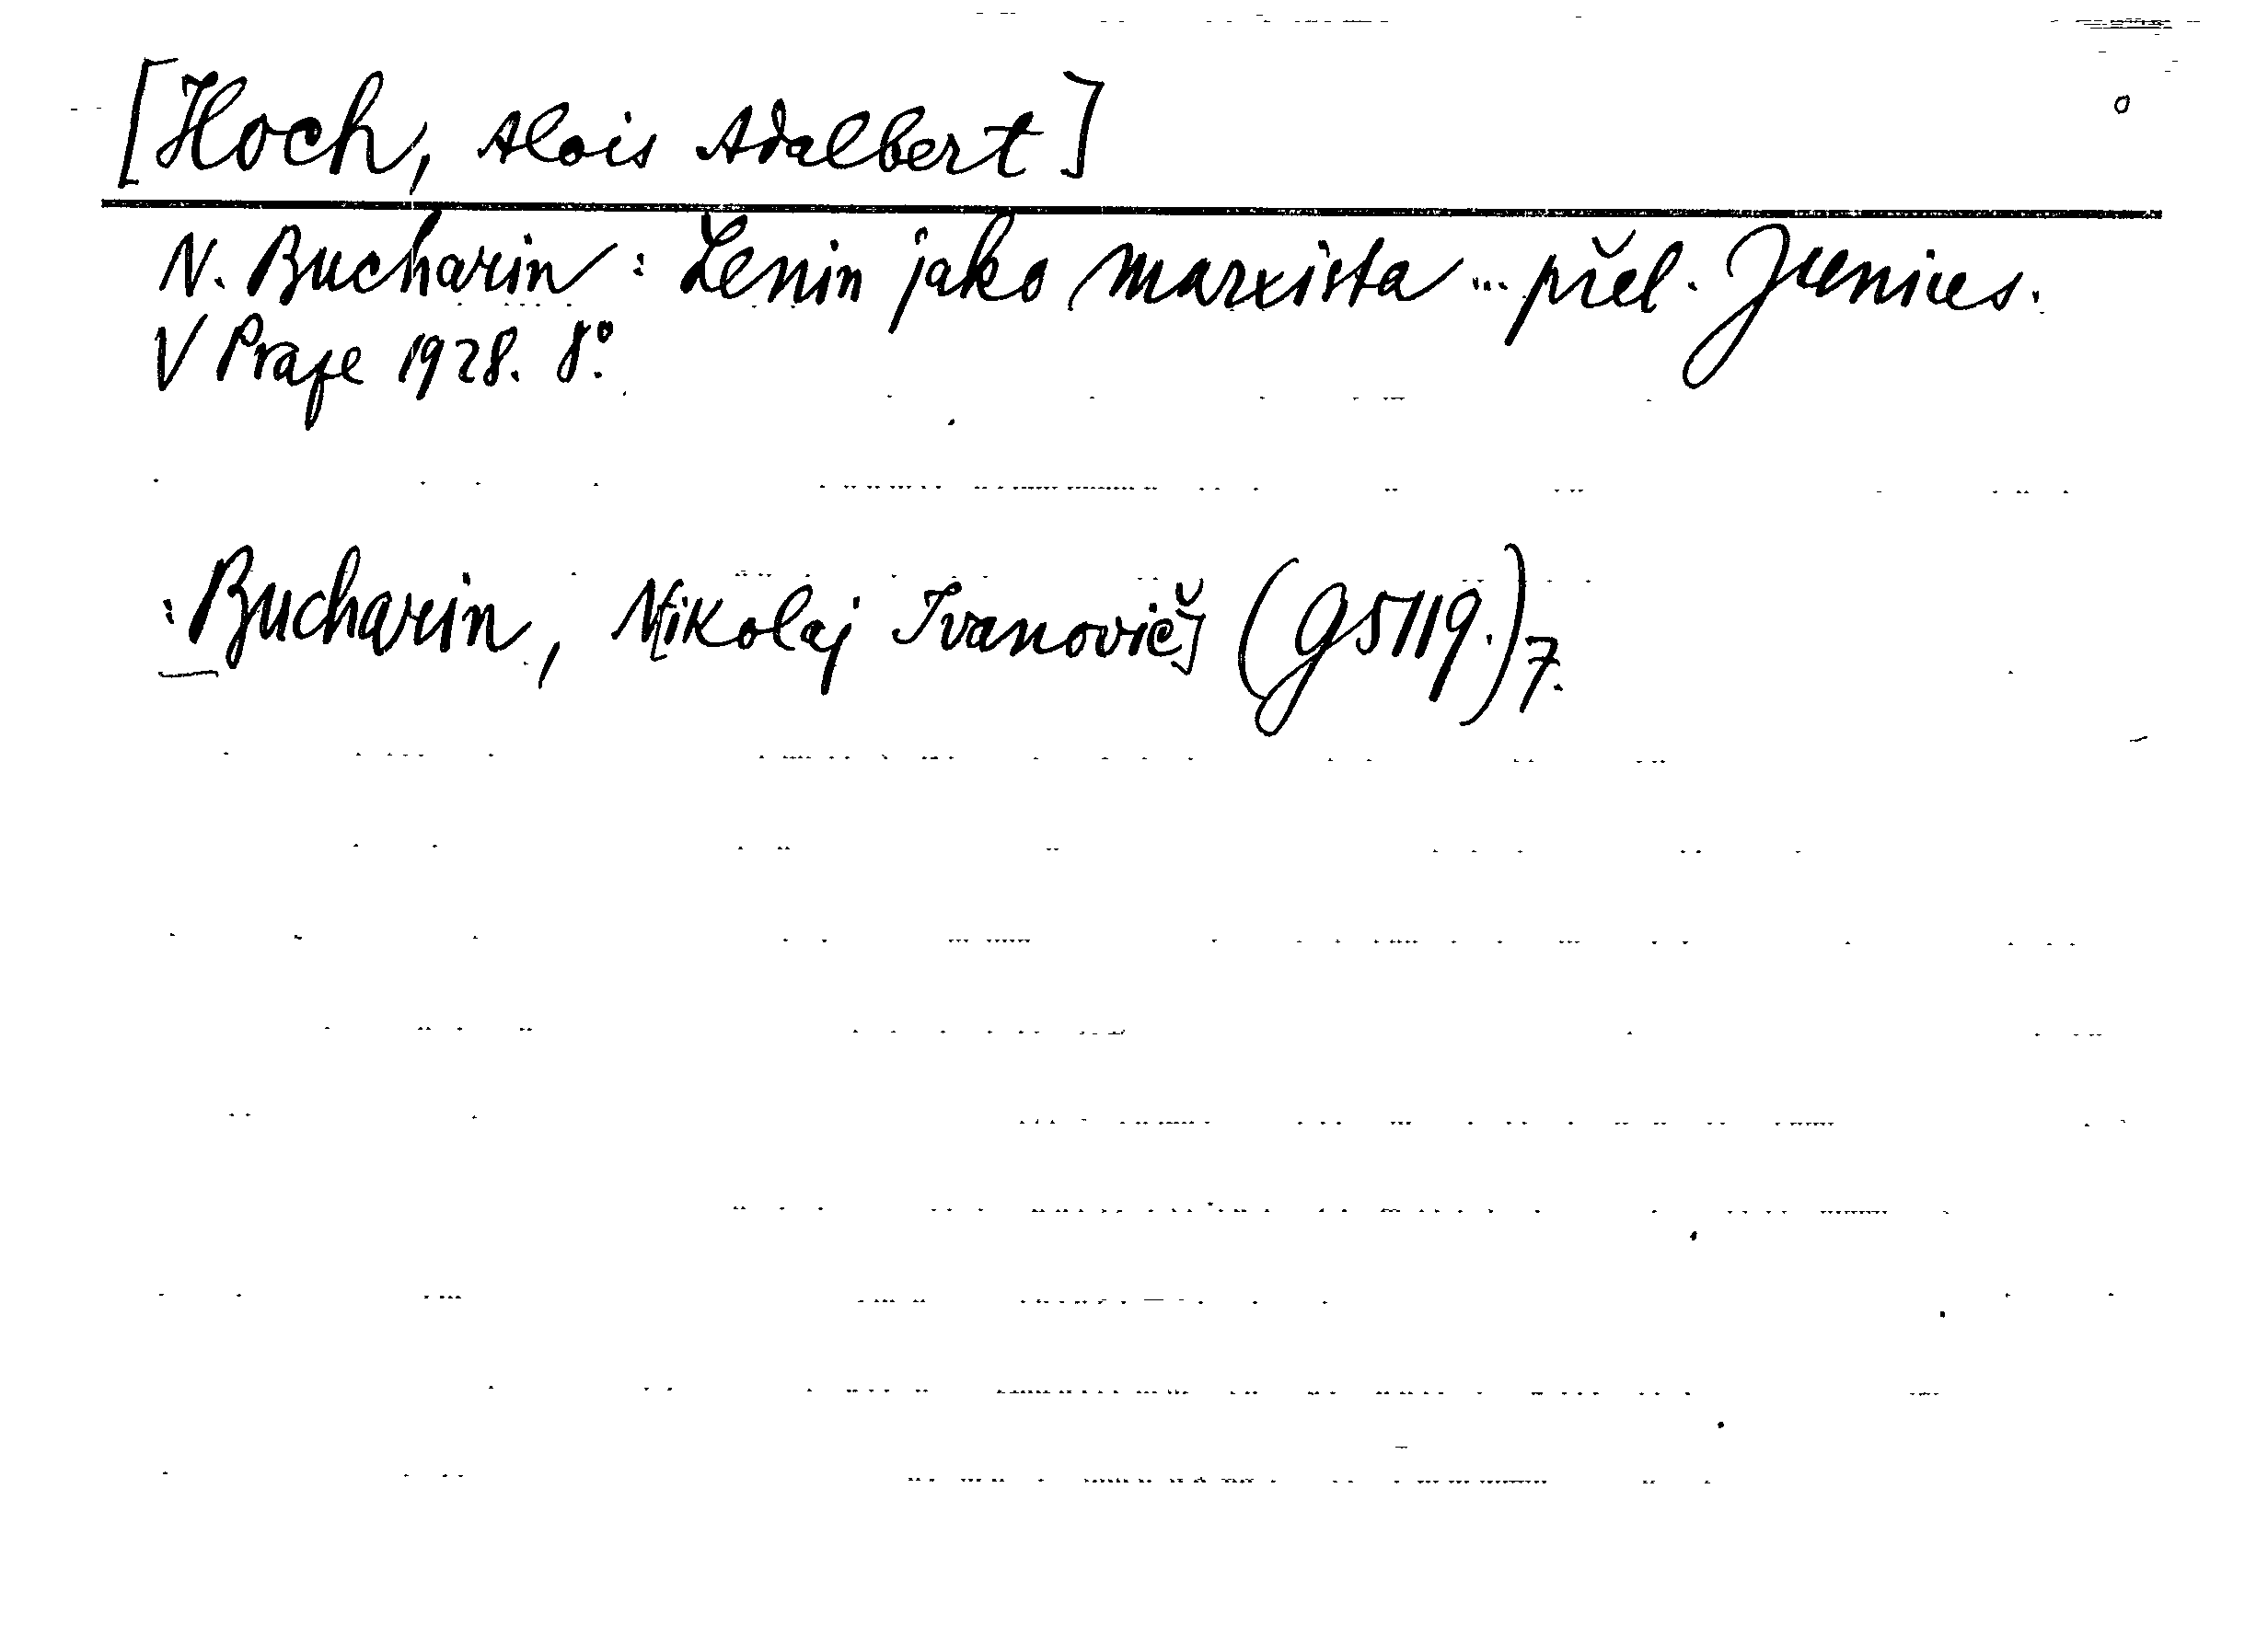 [Hoch, Alois Adalbert]
N. Bucharin: Lenin jako marxista ... přel. Junius.
V Praze 1928. 8°.
: Bucharin, N[ikolaj Ivanovič] (G5119.)7.